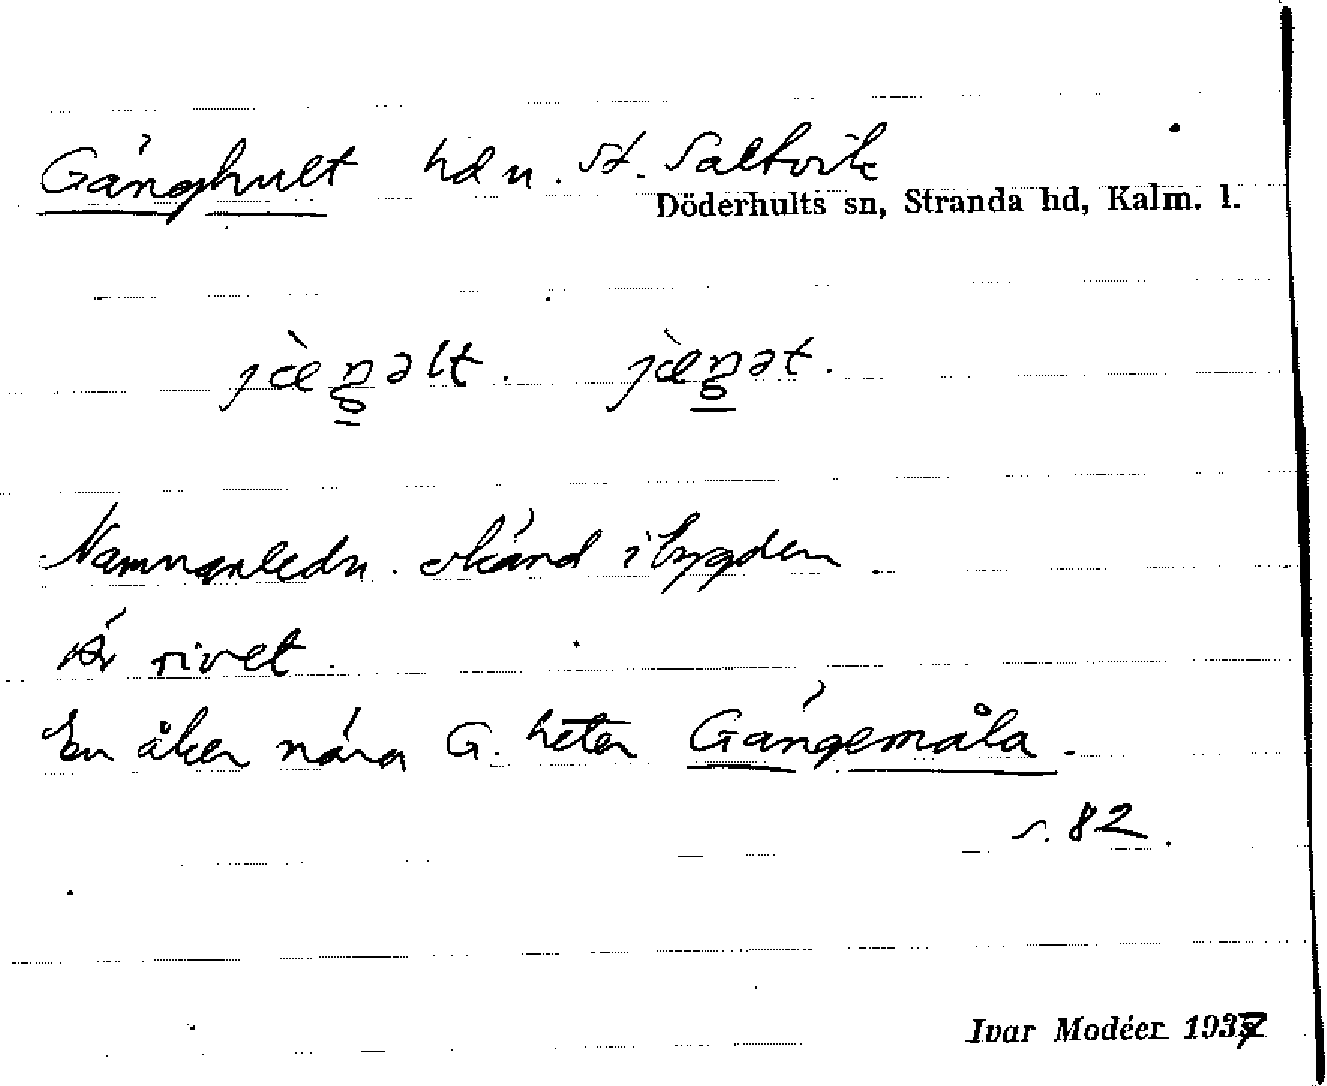 Gänghult hd u. St. Saltvik
Döderhults sn, Stranda hd, Kalm. l.
jæ̀ŋəlt. jæ̀ŋət.
Namnanledn. okänd i bygden
Är rivet.
En åker nära G. heter Gängemåla.
s. 82.
Ivar Modéer 1937